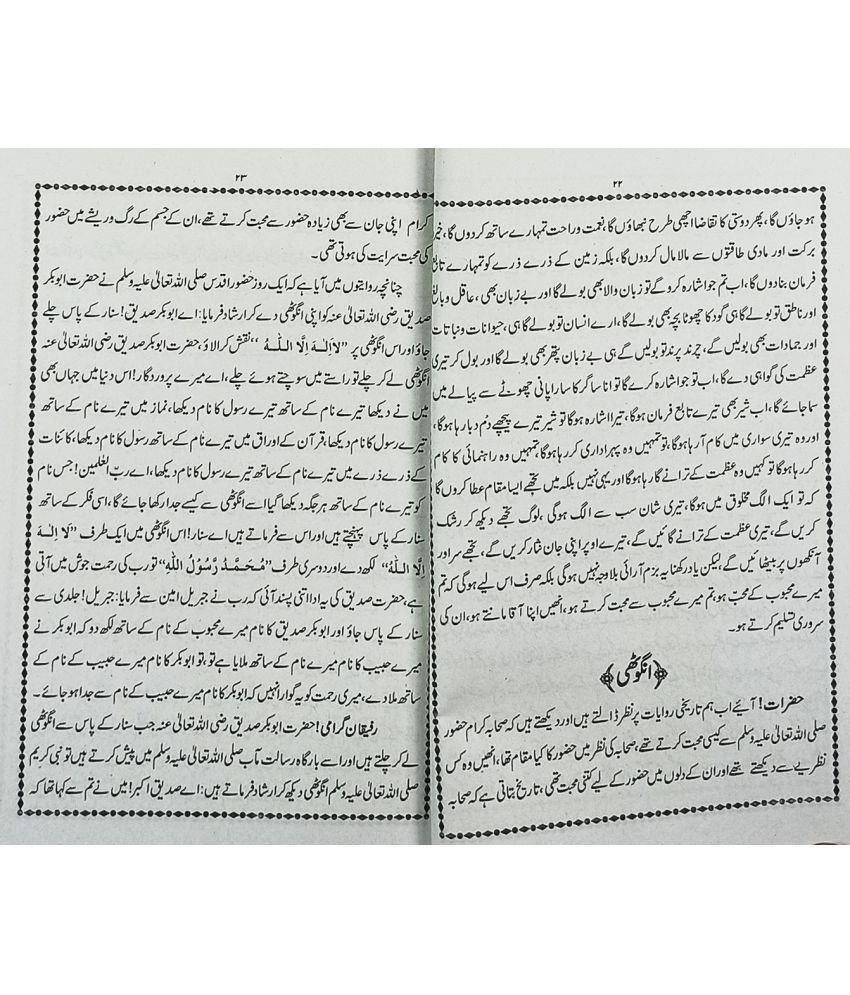 ۲۲
ہوجاؤں گا، پھر دوستی کا تقاضا اچھی طرح نبھاؤں گا، نعمت وراحت تمہارے ساتھ کردوں گا، خیر
برکت اور مادی طاقتوں سے مالا مال کردوں گا، بلکہ زمین کے ذرے ذرے کو تمہارے تابع
فرمان بنادوں گا، اب تم جو اشارہ کروگے تو زبان والا بھی بولے گا اور بے زبان بھی، عاقل وبالغ
اور ناطق تو بولے گا ہی گود کا چھوٹا بچہ بھی بولے گا، ارے انسان تو بولے گا ہی، حیوانات ونباتات
اور جمادات بھی بولیں گے، چرند پرند تو بولیں گے ہی بے زبان پتھر بھی بولے گا اور بول کر تیری
عظمت کی گواہی دے گا، اب تو جو اشارہ کرے گا تو انا ساگر کا سارا پانی چھوٹے سے پیالے میں
سما جائے گا، اب شیر بھی تیرے تابع فرمان ہوگا، تیرا اشارہ ہوگا تو شیر تیرے پیچھے دُم دبا رہا ہوگا،
اور وہ تیری سواری میں کام آرہا ہوگا، تو تمہیں وہ پہراداری کررہا ہوگا، تمہیں وہ راہنمائی کا کام
کررہا ہوگا تو کہیں وہ عظمت کے ترانے گا رہا ہوگا اور یہی نہیں بلکہ میں تجھے ایسا مقام عطا کروں گا
کہ تو ایک الگ مخلوق میں ہوگا، تیری شان سب سے الگ ہوگی، لوگ تجھے دیکھ کر رشک
کریں گے، تیری عظمت کے ترانے گائیں گے، تیرے اوپر اپنی جان نثار کریں گے، تجھے سر اور
آنکھوں پر بیٹھائیں گے، لیکن یاد رکھنا یہ بزم آرائی بلاوجہ نہیں ہوگی بلکہ صرف اس لیے ہوگی کہ تم
میرے محبوب کے محبّ ہو، تم میرے محبوب سے محبت کرتے ہو، انھیں اپنا آقا مانتے ہو، ان کی
سروری تسلیم کرتے ہو۔
﴿انگوٹھی﴾
حضرات! آیئے اب ہم تاریخی روایات پر نظر ڈالتے ہیں اور دیکھتے ہیں کہ صحابہ کرام حضور
صلی اللہ تعالیٰ علیہ وسلم سے کیسی محبت کرتے تھے، صحابہ کی نظر میں حضور کا کیا مقام تھا، انھیں وہ کس
نظریے سے دیکھتے تھے اور ان کے دلوں میں حضور کے لیے کتنی محبت تھی، تاریخ بتاتی ہے کہ صحابہ
۲۳
کرام اپنی جان سے بھی زیادہ حضور سے محبت کرتے تھے، ان کے جسم کے رگ وریشے میں حضور
کی محبت سرایت کی ہوتی تھی۔
چنانچہ روایتوں میں آیا ہے کہ ایک روز حضور اقدس صلی اللہ تعالیٰ علیہ وسلم نے حضرت ابوبکر
صدیق رضی اللہ تعالیٰ عنہ کو اپنی انگوٹھی دے کر ارشاد فرمایا: اے ابوبکر صدیق! سنار کے پاس چلے
جاؤ اور اس انگوٹھی پر ”لَا اِلٰہَ اِلَّا اللہُ“ نقش کرالاؤ، حضرت ابوبکر صدیق رضی اللہ تعالیٰ عنہ
انگوٹھی لے کر چلے تو راستے میں سوچتے ہوئے چلے، اے میرے پروردگار! اس دنیا میں جہاں بھی
میں نے دیکھا تیرے نام کے ساتھ تیرے رسول کا نام دیکھا، نماز میں تیرے نام کے ساتھ
تیرے رسول کا نام دیکھا، قرآن کے اوراق میں تیرے نام کے ساتھ رسول کا نام دیکھا، کائنات
کے ذرے ذرے میں تیرے نام کے ساتھ تیرے رسول کا نام دیکھا، اے ربّ العٰلمین! جس نام
کو تیرے نام کے ساتھ ہر جگہ دیکھا گیا اسے انگوٹھی سے کیسے جدا رکھا جائے گا، اسی فکر کے ساتھ
سنار کے پاس پہنچتے ہیں اور اس سے فرماتے ہیں اے سنار! اس انگوٹھی میں ایک طرف ”لَا اِلٰہَ
اِلَّا اللہُ“ لکھ دے اور دوسری طرف ”مُحَمَّدٌ رَّسُوْلُ اللہِ“ تو رب کی رحمت جوش میں آتی
ہے، حضرت صدیق کی یہ ادا اتنی پسند آئی کہ رب نے جبریل امین سے فرمایا: جبریل! جلدی سے
سنار کے پاس جاؤ اور ابوبکر صدیق کا نام میرے محبوب کے نام کے ساتھ لکھ دو کہ ابوبکر نے
میرے حبیب کا نام میرے نام کے ساتھ ملایا ہے تو، تو ابوبکر کا نام میرے حبیب کے نام کے
ساتھ ملا دے، میری رحمت کو یہ گوارا نہیں کہ ابوبکر کا نام میرے حبیب کے نام سے جدا ہوجائے۔
رفیقان گرامی! حضرت ابوبکر صدیق رضی اللہ تعالیٰ عنہ جب سنار کے پاس سے انگوٹھی
لے کر چلتے ہیں اور اسے بارگاہ رسالت مآب صلی اللہ تعالیٰ علیہ وسلم میں پیش کرتے ہیں تو نبی کریم
صلی اللہ تعالیٰ علیہ وسلم انگوٹھی دیکھ کر ارشاد فرماتے ہیں: اے صدیق اکبر! میں نے تم سے کہا تھا کہ